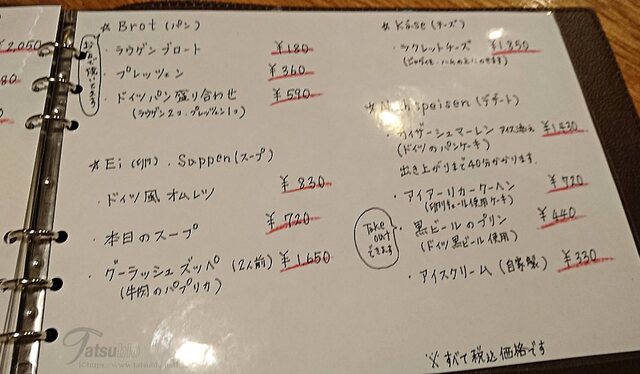 ¥2,050
80
* Brot (パン)
・ラウゲンブロート ¥180
・プレッツェン ¥360
・ドイツパン盛り合わせ ¥590
(ラウゲン2コ・プレッツェン1コ)
* Ei (卵)・Suppen (スープ)
・ドイツ風オムレツ ¥830
・本日のスープ ¥720
・グーラッシュズッペ (2人前) ¥1,650
(牛肉のパプリカ)
* Käse (チーズ)
・ラクレットチーズ ¥1,350
* Nachspeisen (デザート)
・カイザーシュマーレン アイス添え ¥1,430
(ドイツのパンケーキ)
出き上がりまで40分かかります.
・アイアーリカークーヘン ¥720
(卵リキュール使用ケーキ)
Take out できます
・黒ビールのプリン ¥440
(ドイツ黒ビール使用)
・アイスクリーム (自家製) ¥330
※すべて税込価格です
Tatsublo